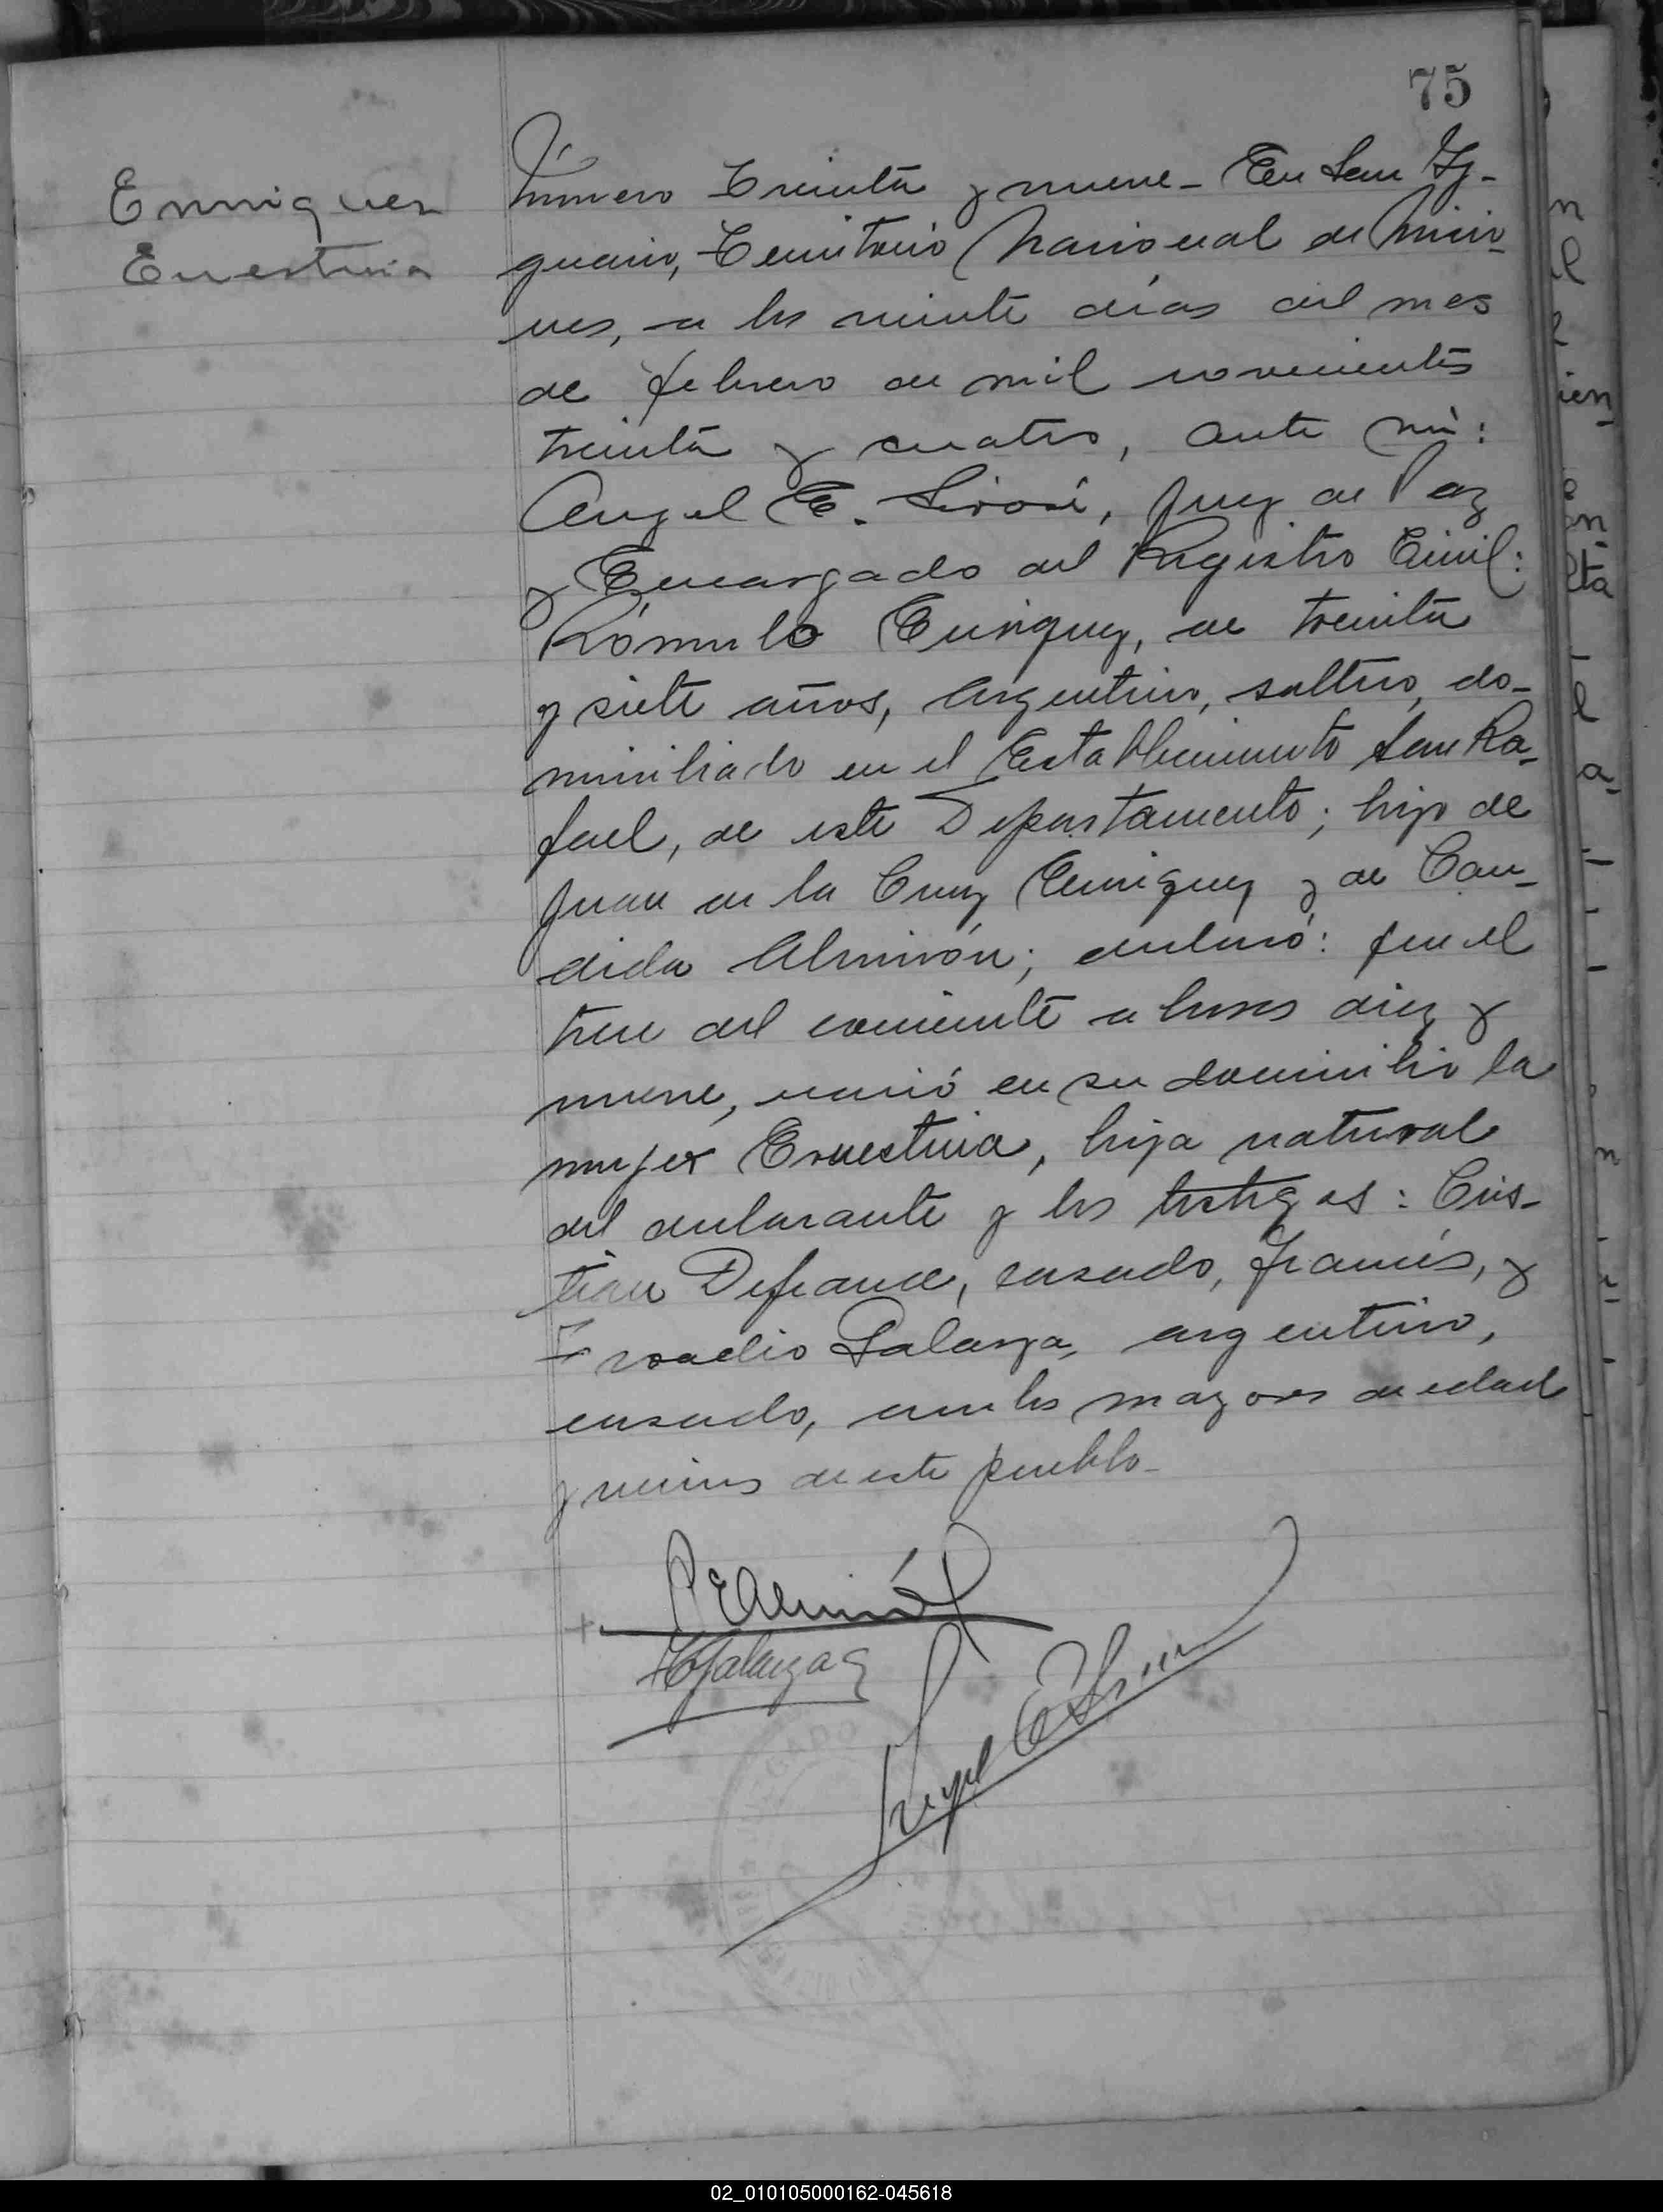 75
Enriquez
Ernestina
Número Treinta y nueve - En San Ig-
nacio, Territorio Nacional de Misio-
nes, a los veinte días del mes
de febrero de mil novecientos
treinta y cuatro, ante mí:
Angel E. , Juez de Paz
y Encargado del Registro Civil:
Rómulo Enriquez, de treinta
y siete años, Argentino, soltero, do-
miciliado en el Establecimiento San Ra-
fael, de este Departamento; hijo de
Juan de la Cruz Enriquez y de Can-
dida Almirón; declaró: que el
trece del corriente a horas diez y
nueve, nació en su domicilio la
mujer Ernestina, hija natural
del declarante y los testigos: Cris-
tian Defrance, casado, francés, y
Galarza, argentino,
casado, ambos mayores de edad
y vecinos de este pueblo-
Galarza
Angel E
02_010105000162-045618